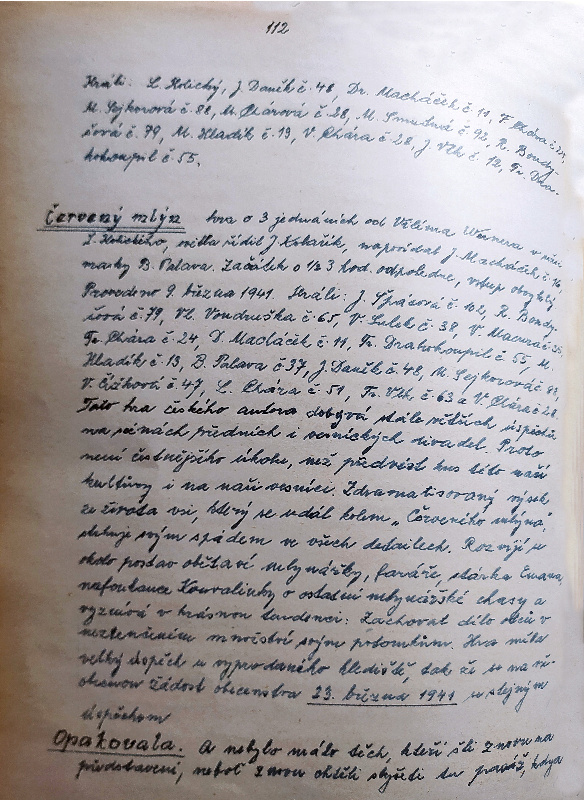 112
Hráli: L. Holický, J. Daněk č. 48, Dr. Macháček č. 11, F. Chára č. 24,
M. Sejkorová č. 88, M. Chárová č. 28, M. Smutná č. 92, R. Bondy-
šová č. 79, M. Hladík č. 13, V. Chára č. 28, J. Vlk č. 12, Fr. Dra-
hokoupil č. 55.
Červený mlýn hra o 3 jednáních od Viléma Wernera v
L. Holického, světla řídil J. Kobařík, napovídal J. Macháček č. 16,
masky B. Palava. Začátek o 1/2 3 hod. odpoledne, vstup obvyklý
Provedeno 9. března 1941. Hráli: J. Špásová č. 102, R. Bondy-
šová č. 79, Vl. Vondruška č. 65, V. Sulek č. 38, V. Macura č. 35,
Fr. Chára č. 24, D. Macháček č. 11, Fr. Drahokoupil č. 55, M.
Hladík č. 13, B. Palava č. 37, J. Daněk č. 48, M. Sejkorová č. 88,
V. Čížková č. 47, L. Chára č. 51, Fr. Vlk č. 63 a V. Chára č. 28.
Tato hra českého autora dobývá stále větších úspěchů
na scénách předních i venkovských divadel. Proto
není čestnějšího úkolu, než předvést kus této naší
kultury i na naší vesnici. Zdramatisovaný výsek
ze života vsi, který se udál kolem „Červeného mlýna",
sleduje svým spádem ve všech detailech. Rozvíjí se
okolo postav obětavé mlynářky, faráře, stárka Emana,
nafoukance Konvalinky a ostatní mlynářské chasy a
vyznívá v krásnou tendenci: Zachovat dílo otců v
neztenčeném množství svým potomkům. Hra měla
velký úspěch u vyprodaného hlediště, tak že se na vše-
obecnou žádost obecenstva 23. března 1941 se stejným
úspěchem
Opakovala. A nebylo málo těch, kteří šli znovu na
představení, neboť znovu chtěli slyšeti tu pasáž, kdya